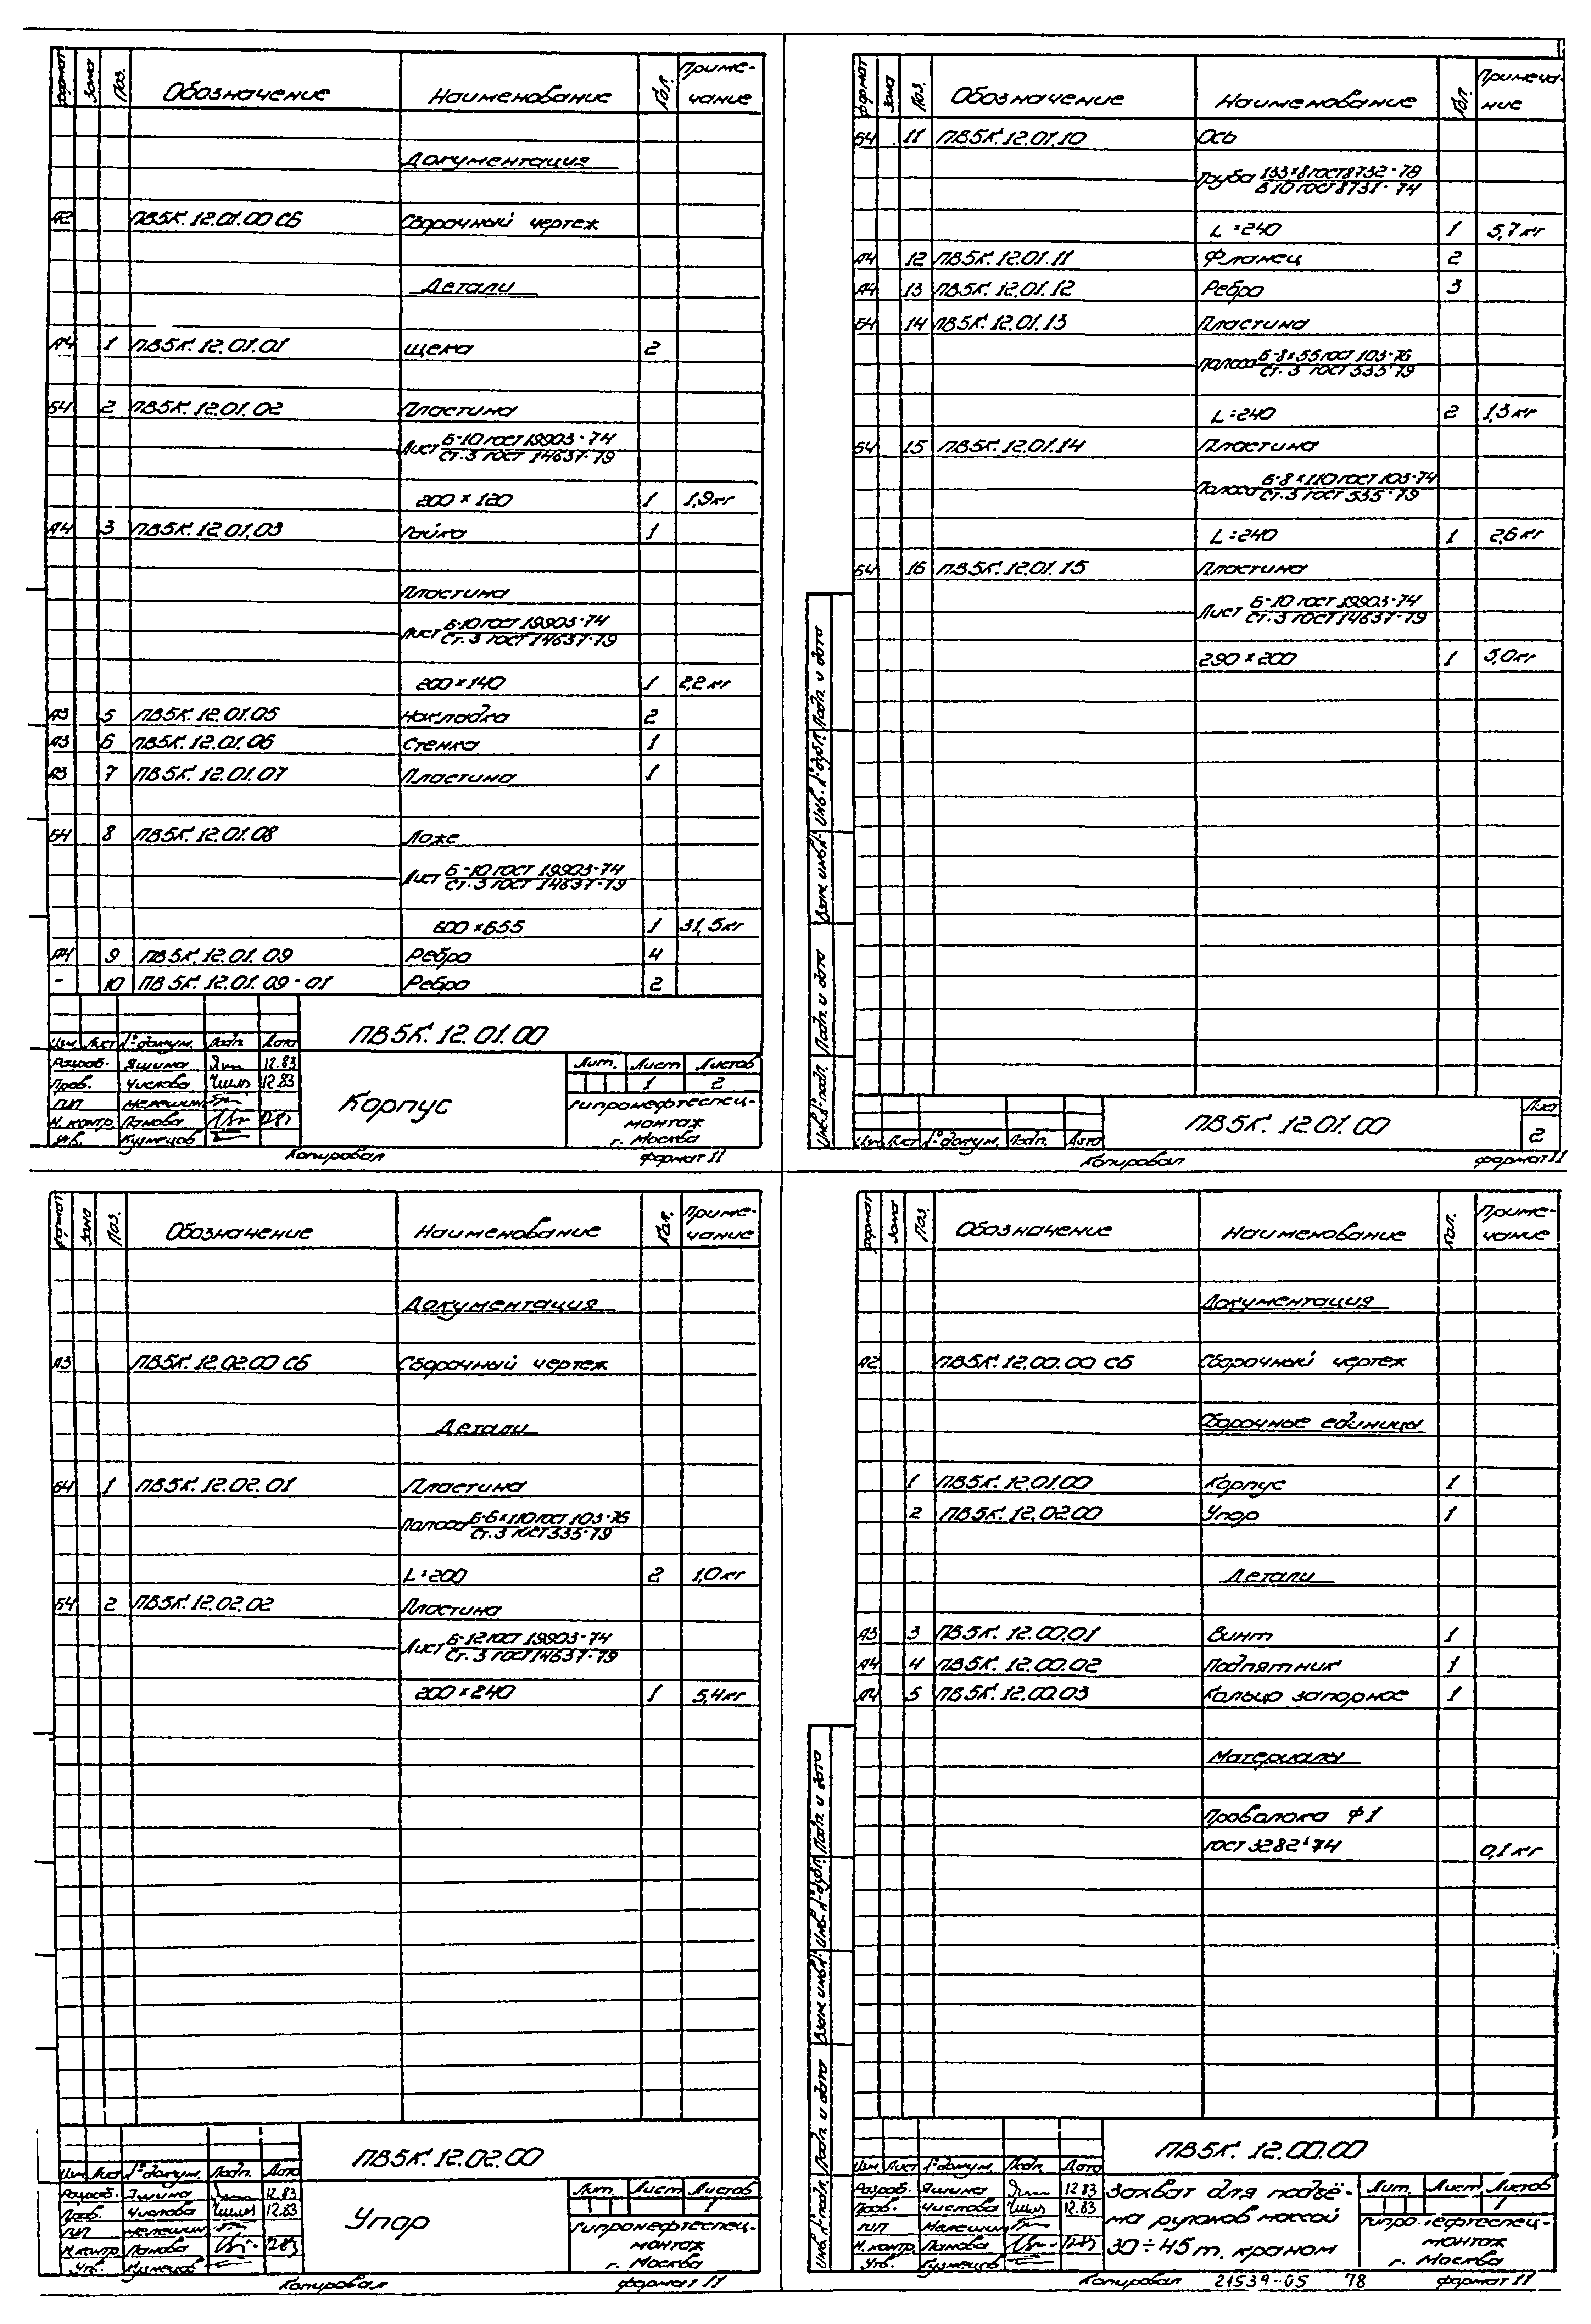 Формат Зона Поз. Обозначение Наименование Кол. Приме-
чание
Документация
А2 ПВ5К.12.01.00 СБ Сборочный чертеж
Детали
А4 1 ПВ5К.12.01.01 Щека 2
Б4 2 ПВ5К.12.01.02 Пластина
Лист Б-10 ГОСТ 19903-74
Ст.3 ГОСТ 14637-79
200×120 1 1,9кг
А4 3 ПВ5К.12.01.03 Гайка 1
Пластина
Лист Б-10 ГОСТ 19903-74
Ст.3 ГОСТ 14637-79
200×140 1 2,2кг
А3 5 ПВ5К.12.01.05 Накладка 2
А3 6 ПВ5К.12.01.06 Стенка 1
А3 7 ПВ5К.12.01.07 Пластина 1
Б4 8 ПВ5К.12.01.08 Ложе
Лист Б-10 ГОСТ 19903-74
Ст.3 ГОСТ 14637-79
600×655 1 31,5кг
А4 9 ПВ5К.12.01.09 Ребро 4
- 10 ПВ5К.12.01.09-01 Ребро 2
ПВ5К.12.01.00
Изм. Лист № докум. Подп. Дата
Разраб. Яшина 12.83
Пров. Числова 12.83
ГИП Мелешин
Н. контр. Панова
Утв. Кузнецов
Корпус
Лит. Лист Листов
1 2
Гипронефтеспец-
монтаж
г. Москва
Копировал Формат 11
Формат Зона Поз. Обозначение Наименование Кол. Примеча-
ние
Б4 11 ПВ5К.12.01.10 Ось
Труба 133×8 ГОСТ 8732-78
В10 ГОСТ 8731-74
L=240 1 5,7кг
А4 12 ПВ5К.12.01.11 Фланец 2
А4 13 ПВ5К.12.01.12 Ребро 3
Б4 14 ПВ5К.12.01.13 Пластина
Полоса Б-8×55 ГОСТ 103-76
Ст.3 ГОСТ 535-79
L=240 2 1,3кг
Б4 15 ПВ5К.12.01.14 Пластина
Полоса Б-8×110 ГОСТ 103-74
Ст.3 ГОСТ 535-79
L=240 1 2,6кг
Б4 16 ПВ5К.12.01.15 Пластина
Лист Б-10 ГОСТ 19903-74
Ст.3 ГОСТ 14637-79
290×200 1 5,0кг
Инв. № подл. Подп. и дата Взам. инв. № Инв. № дубл. Подп. и дата
Изм. Лист № докум. Подп. Дата
ПВ5К.12.01.00
Лист
2
Копировал Формат 11
Формат Зона Поз. Обозначение Наименование Кол. Приме-
чание
Документация
А3 ПВ5К.12.02.00 СБ Сборочный чертеж
Детали
Б4 1 ПВ5К.12.02.01 Пластина
Полоса Б-6×110 ГОСТ 103-76
Ст.3 ГОСТ 535-79
L=200 2 1,0кг
Б4 2 ПВ5К.12.02.02 Пластина
Лист Б-12 ГОСТ 19903-74
Ст.3 ГОСТ 14637-79
200×240 1 5,4кг
ПВ5К.12.02.00
Изм. Лист № докум. Подп. Дата
Разраб. Яшина 12.83
Пров. Числова 12.83
ГИП Мелешин
Н. контр. Панова 12.83
Утв. Кузнецов
Упор
Лит. Лист Листов
1
Гипронефтеспец-
монтаж
г. Москва
Копировал Формат 11
Формат Зона Поз. Обозначение Наименование Кол. Приме-
чание
Документация
А2 ПВ5К.12.00.00 СБ Сборочный чертеж
Сборочные единицы
1 ПВ5К.12.01.00 Корпус 1
2 ПВ5К.12.02.00 Упор 1
Детали
А3 3 ПВ5К.12.00.01 Винт 1
А4 4 ПВ5К.12.00.02 Подпятник 1
А4 5 ПВ5К.12.00.03 Кольцо запорное 1
Материалы
Проволока Ф1
ГОСТ 3282-74 0,1кг
Инв. № подл. Подп. и дата Взам. инв. № Инв. № дубл. Подп. и дата
ПВ5К.12.00.00
Изм. Лист № докум. Подп. Дата
Разраб. Яшина 12.83
Пров. Числова 12.83
ГИП Мелешин
Н. контр. Панова 12.83
Утв. Кузнецов
Захват для подъё-
ма рулонов массой
30÷45т. краном
Лит. Лист Листов
1
Гипронефтеспец-
монтаж
г. Москва
Копировал 21539-05 78 Формат 11